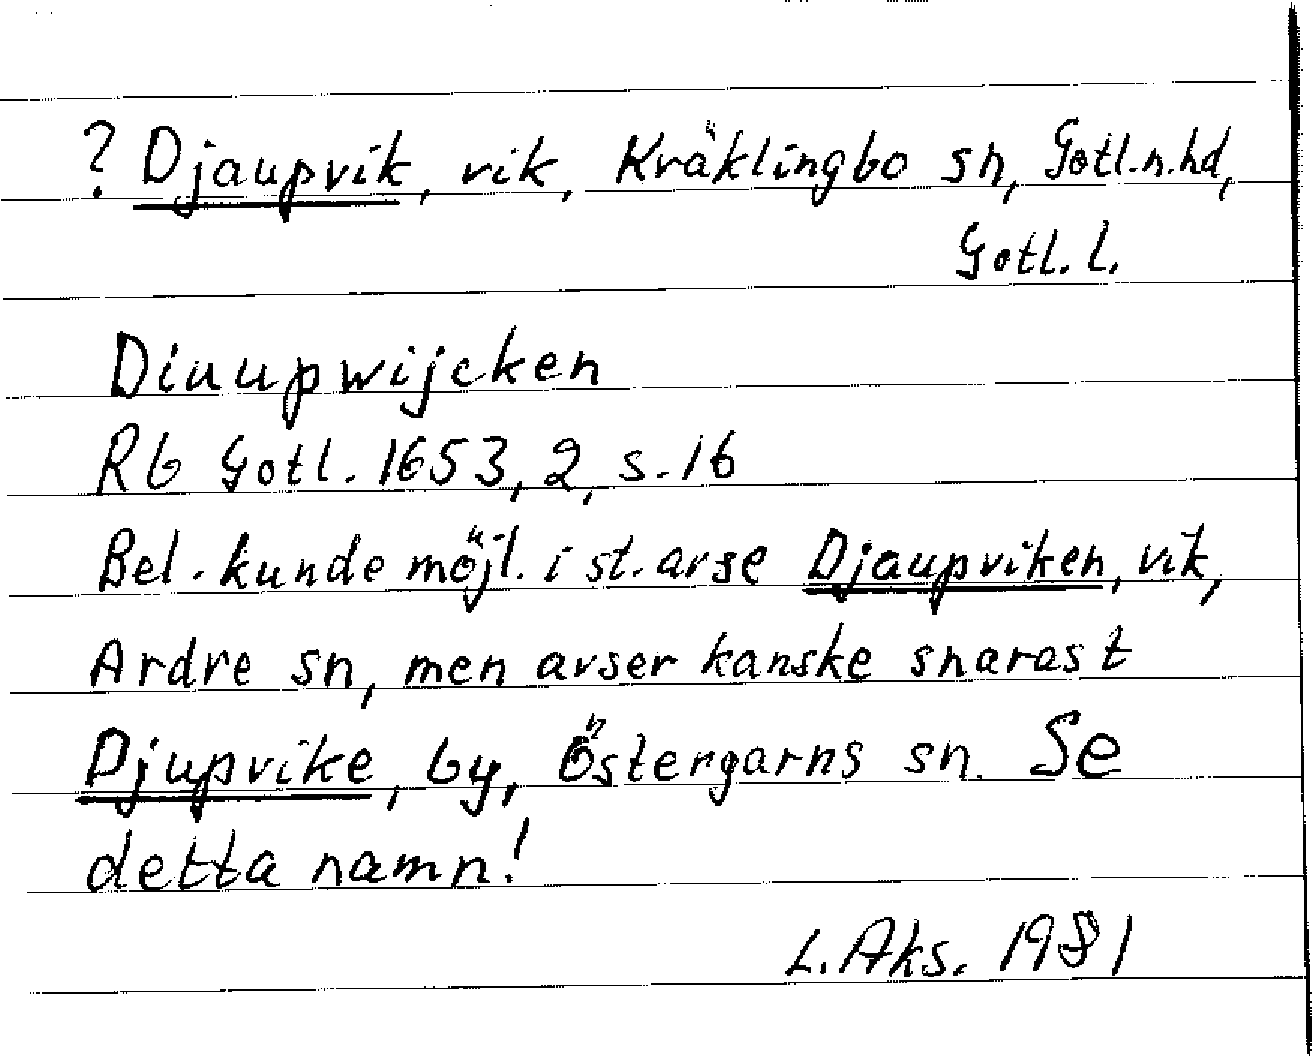 ? Djaupvik, vik, Kräklingbo sn, Gotl.n.hd,
Gotl. l.
Diuupwijcken
Rb Gotl. 1653, 2, s. 16
Bel. kunde möjl. i st. avse Djaupviken, vik,
Ardre sn, men avser kanske snarast
Djupvike, by, Östergarns sn. Se
detta namn!
L. Aks. 1981